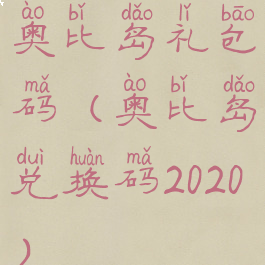 ào bǐ dǎo lǐ bāo
奥比岛礼包
mǎ ào bǐ dǎo
码(奥比岛
duì huàn mǎ
兑换码2020
)